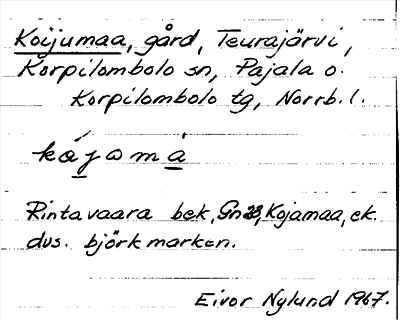 Koijumaa, gård, Teurajärvi,
Korpilombolo sn, Pajala o.
Korpilombolo tg, Norrb. l.
kájamà
Rintavaara bek, Kojamaa, ek.
dvs. björkmarken.
Eivor Nylund 1967.